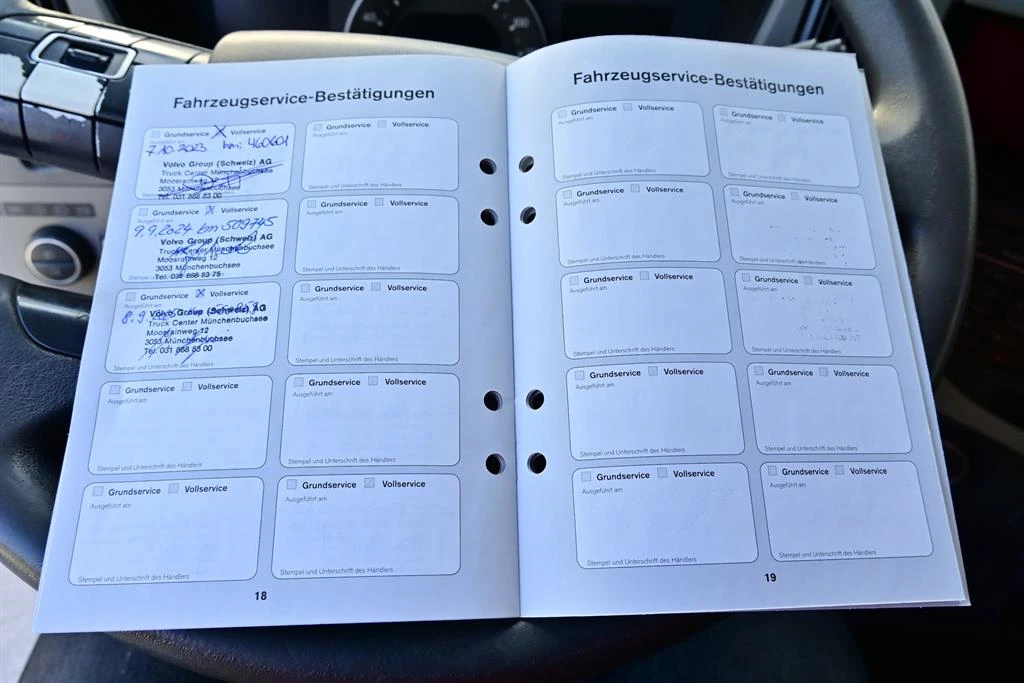 Fahrzeugservice-Bestätigungen
Grundservice Vollservice
Ausgeführt am
7.10.2023 bm: 460601
Volvo Group (Schweiz) AG
Truck Center Münchenbuchsee
Moosrainweg 12
3053 Münchenbuchsee
Tel. 031 868 83 00
Grundservice Vollservice
Ausgeführt am
Stempel und Unterschrift des Händlers
Grundservice Vollservice
9.9.2024 bm 509745
Volvo Group (Schweiz) AG
Truck Center Münchenbuchsee
Moosrainweg 12
3053 Münchenbuchsee
Tel. 031 868 83 75
Grundservice Vollservice
Ausgeführt am
Stempel und Unterschrift des Händlers
Grundservice Vollservice
Ausgeführt am
8.9.
Volvo Group (Schweiz) AG
Truck Center Münchenbuchsee
Moosrainweg 12
3053 Münchenbuchsee
Tel. 031 868 83 00
Stempel und Unterschrift des Händlers
Grundservice Vollservice
Ausgeführt am
Stempel und Unterschrift des Händlers
Grundservice Vollservice
Ausgeführt am
Stempel und Unterschrift des Händlers
Grundservice Vollservice
Ausgeführt am
Stempel und Unterschrift des Händlers
Grundservice Vollservice
Ausgeführt am
Stempel und Unterschrift des Händlers
Grundservice Vollservice
Ausgeführt am
Stempel und Unterschrift des Händlers
18
Fahrzeugservice-Bestätigungen
Grundservice Vollservice
Ausgeführt am
Stempel und Unterschrift des Händlers
Grundservice Vollservice
Ausgeführt am
Stempel und Unterschrift des Händlers
Grundservice Vollservice
Ausgeführt am
Stempel und Unterschrift des Händlers
Grundservice Vollservice
Ausgeführt am
Stempel und Unterschrift des Händlers
Grundservice Vollservice
Ausgeführt am
Stempel und Unterschrift des Händlers
Grundservice Vollservice
Ausgeführt am
Stempel und Unterschrift des Händlers
Grundservice Vollservice
Ausgeführt am
Stempel und Unterschrift des Händlers
Grundservice Vollservice
Ausgeführt am
Stempel und Unterschrift des Händlers
Grundservice Vollservice
Ausgeführt am
Stempel und Unterschrift des Händlers
Grundservice Vollservice
Ausgeführt am
Stempel und Unterschrift des Händlers
19